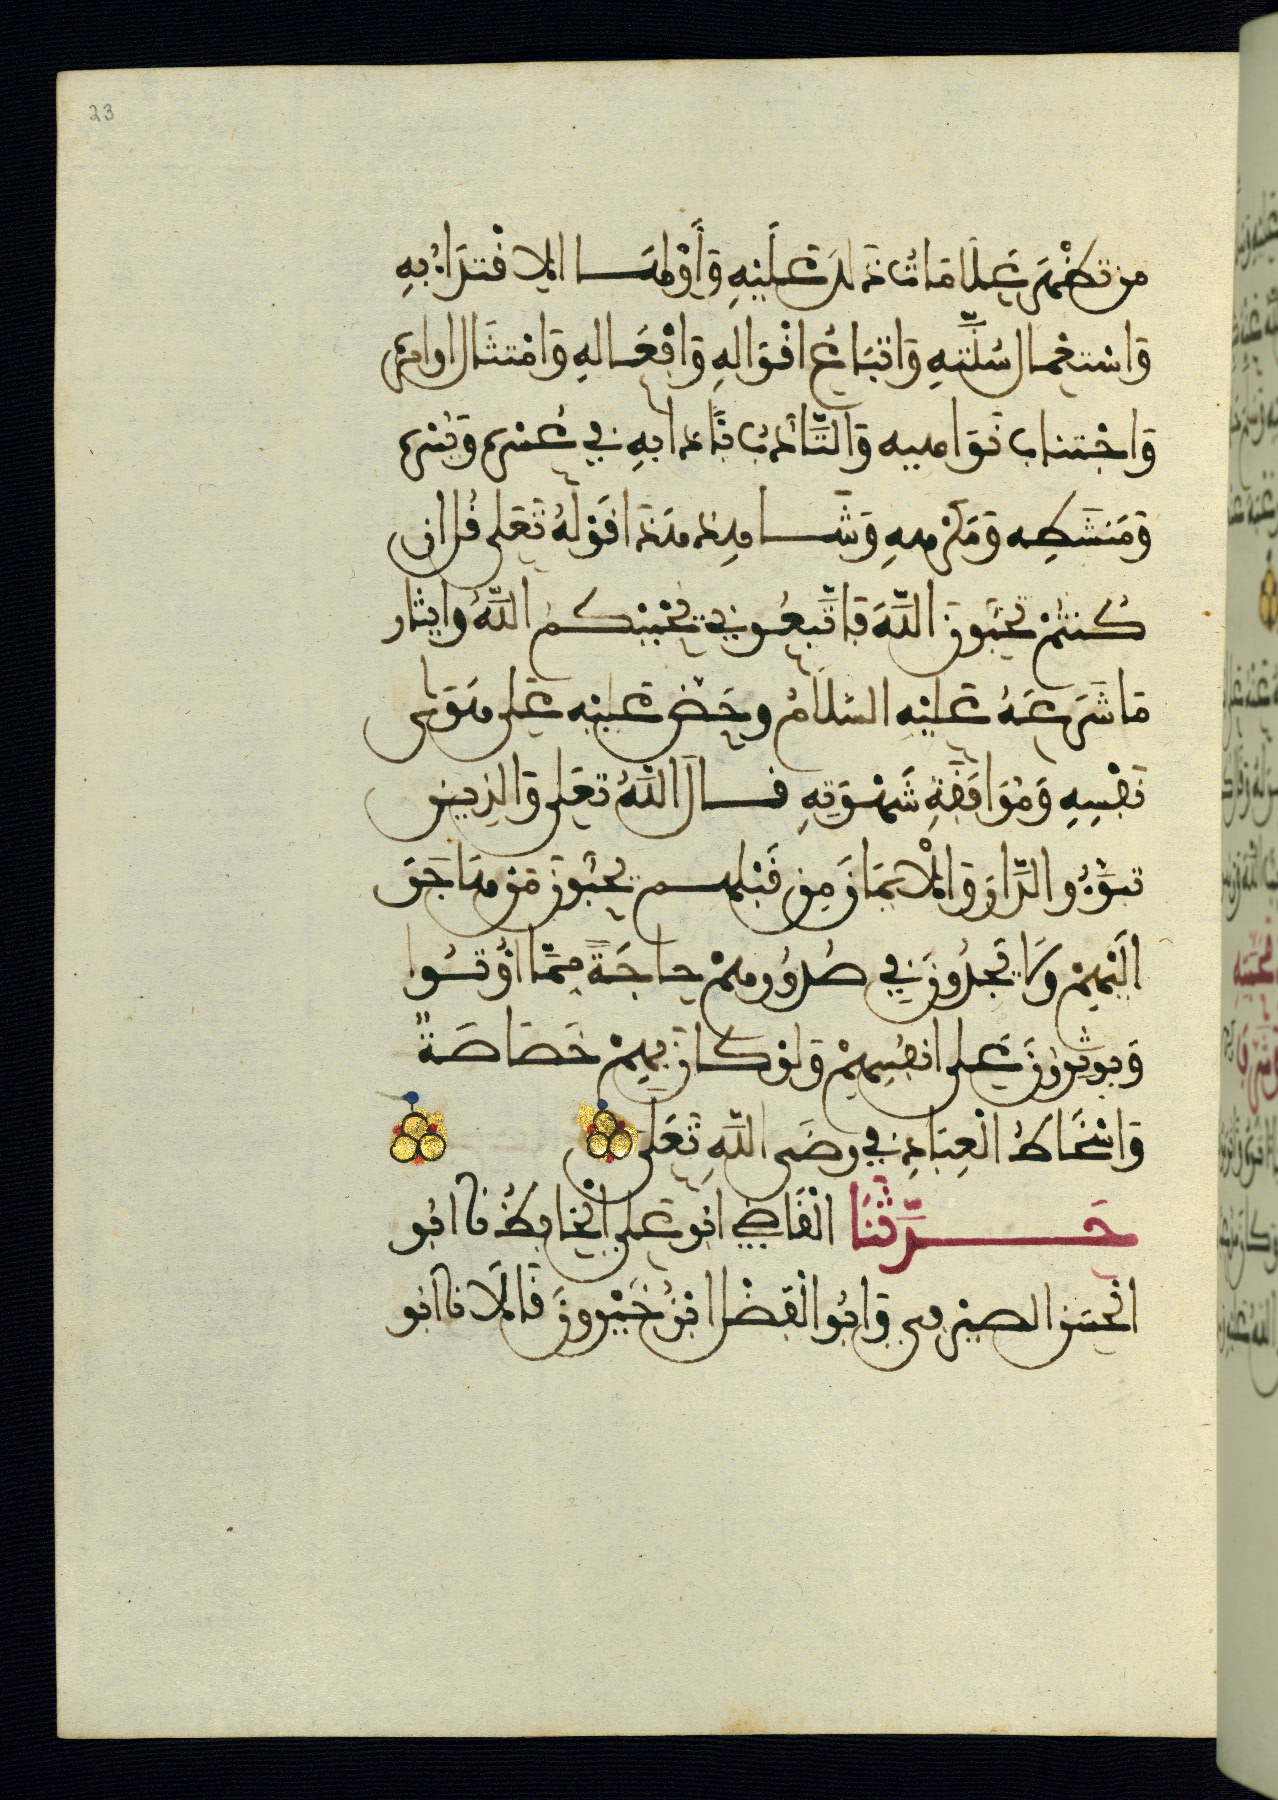 23
من تظهر علامات ذلك عليه وأولها الاقتداء به
واستعمال سنته واتباع اقواله وافعاله وامتثال اوامره
واجتناب نواهيه والتأدب بآدابه في عسره ويسره
ومنشطه ومكرهه وشاهد هذا قوله تعلى قل ان
كنتم تحبون الله فاتبعوني يحببكم الله وايثار
ما شرعه عليه السلام وحض عليه على هوى
نفسه وموافقة شهوته قال الله تعلى والذين
تبوءو الدار والايمان من قبلهم يحبون من هاجر
اليهم ولا يجدون في صدورهم حاجة مما اوتوا
ويوثرون على انفسهم ولو كان بهم خصاصة
واسخاط العباد في رضى الله تعلى
حدثنا القاضي ابو علي الحافظ نا ابو
الحسن الصيرفي وابو الفضل ابن خيرون قالا نا ابو